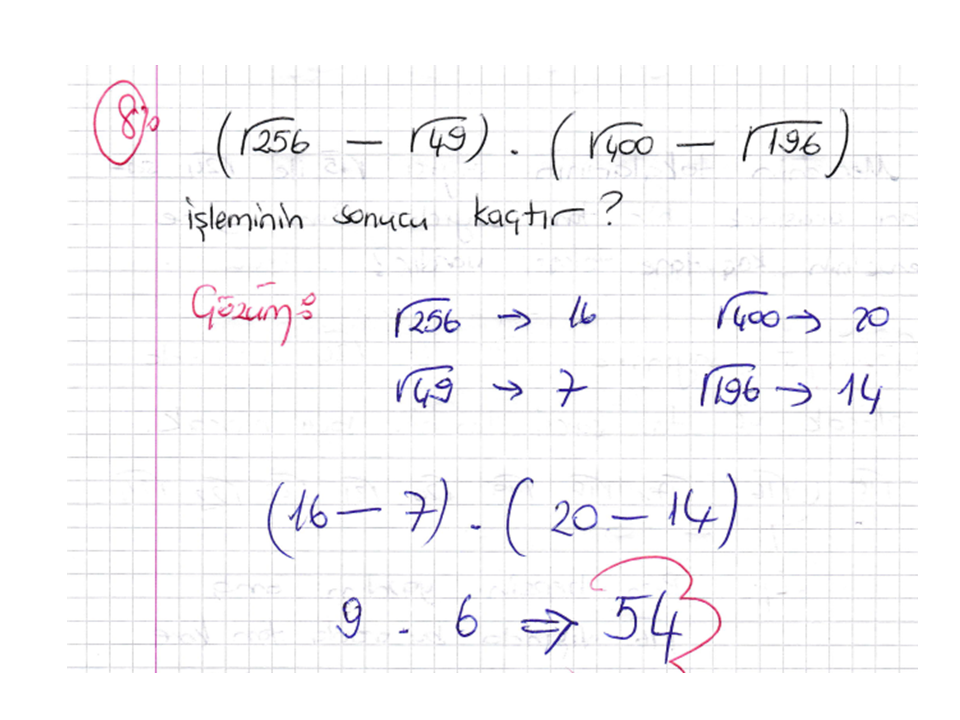 8%
(√256 − √49) . (√400 − √196)
işleminin sonucu kaçtır ?
Çözüm:
√256 → 16 √400 → 20
√49 → 7 √196 → 14
(16 − 7) . (20 − 14)
9 . 6 ⇒ 54